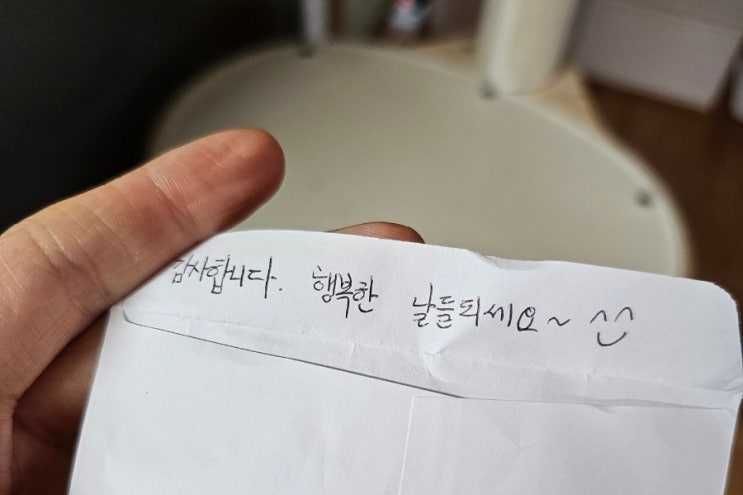 감사합니다. 행복한 날들되세요~ ^^